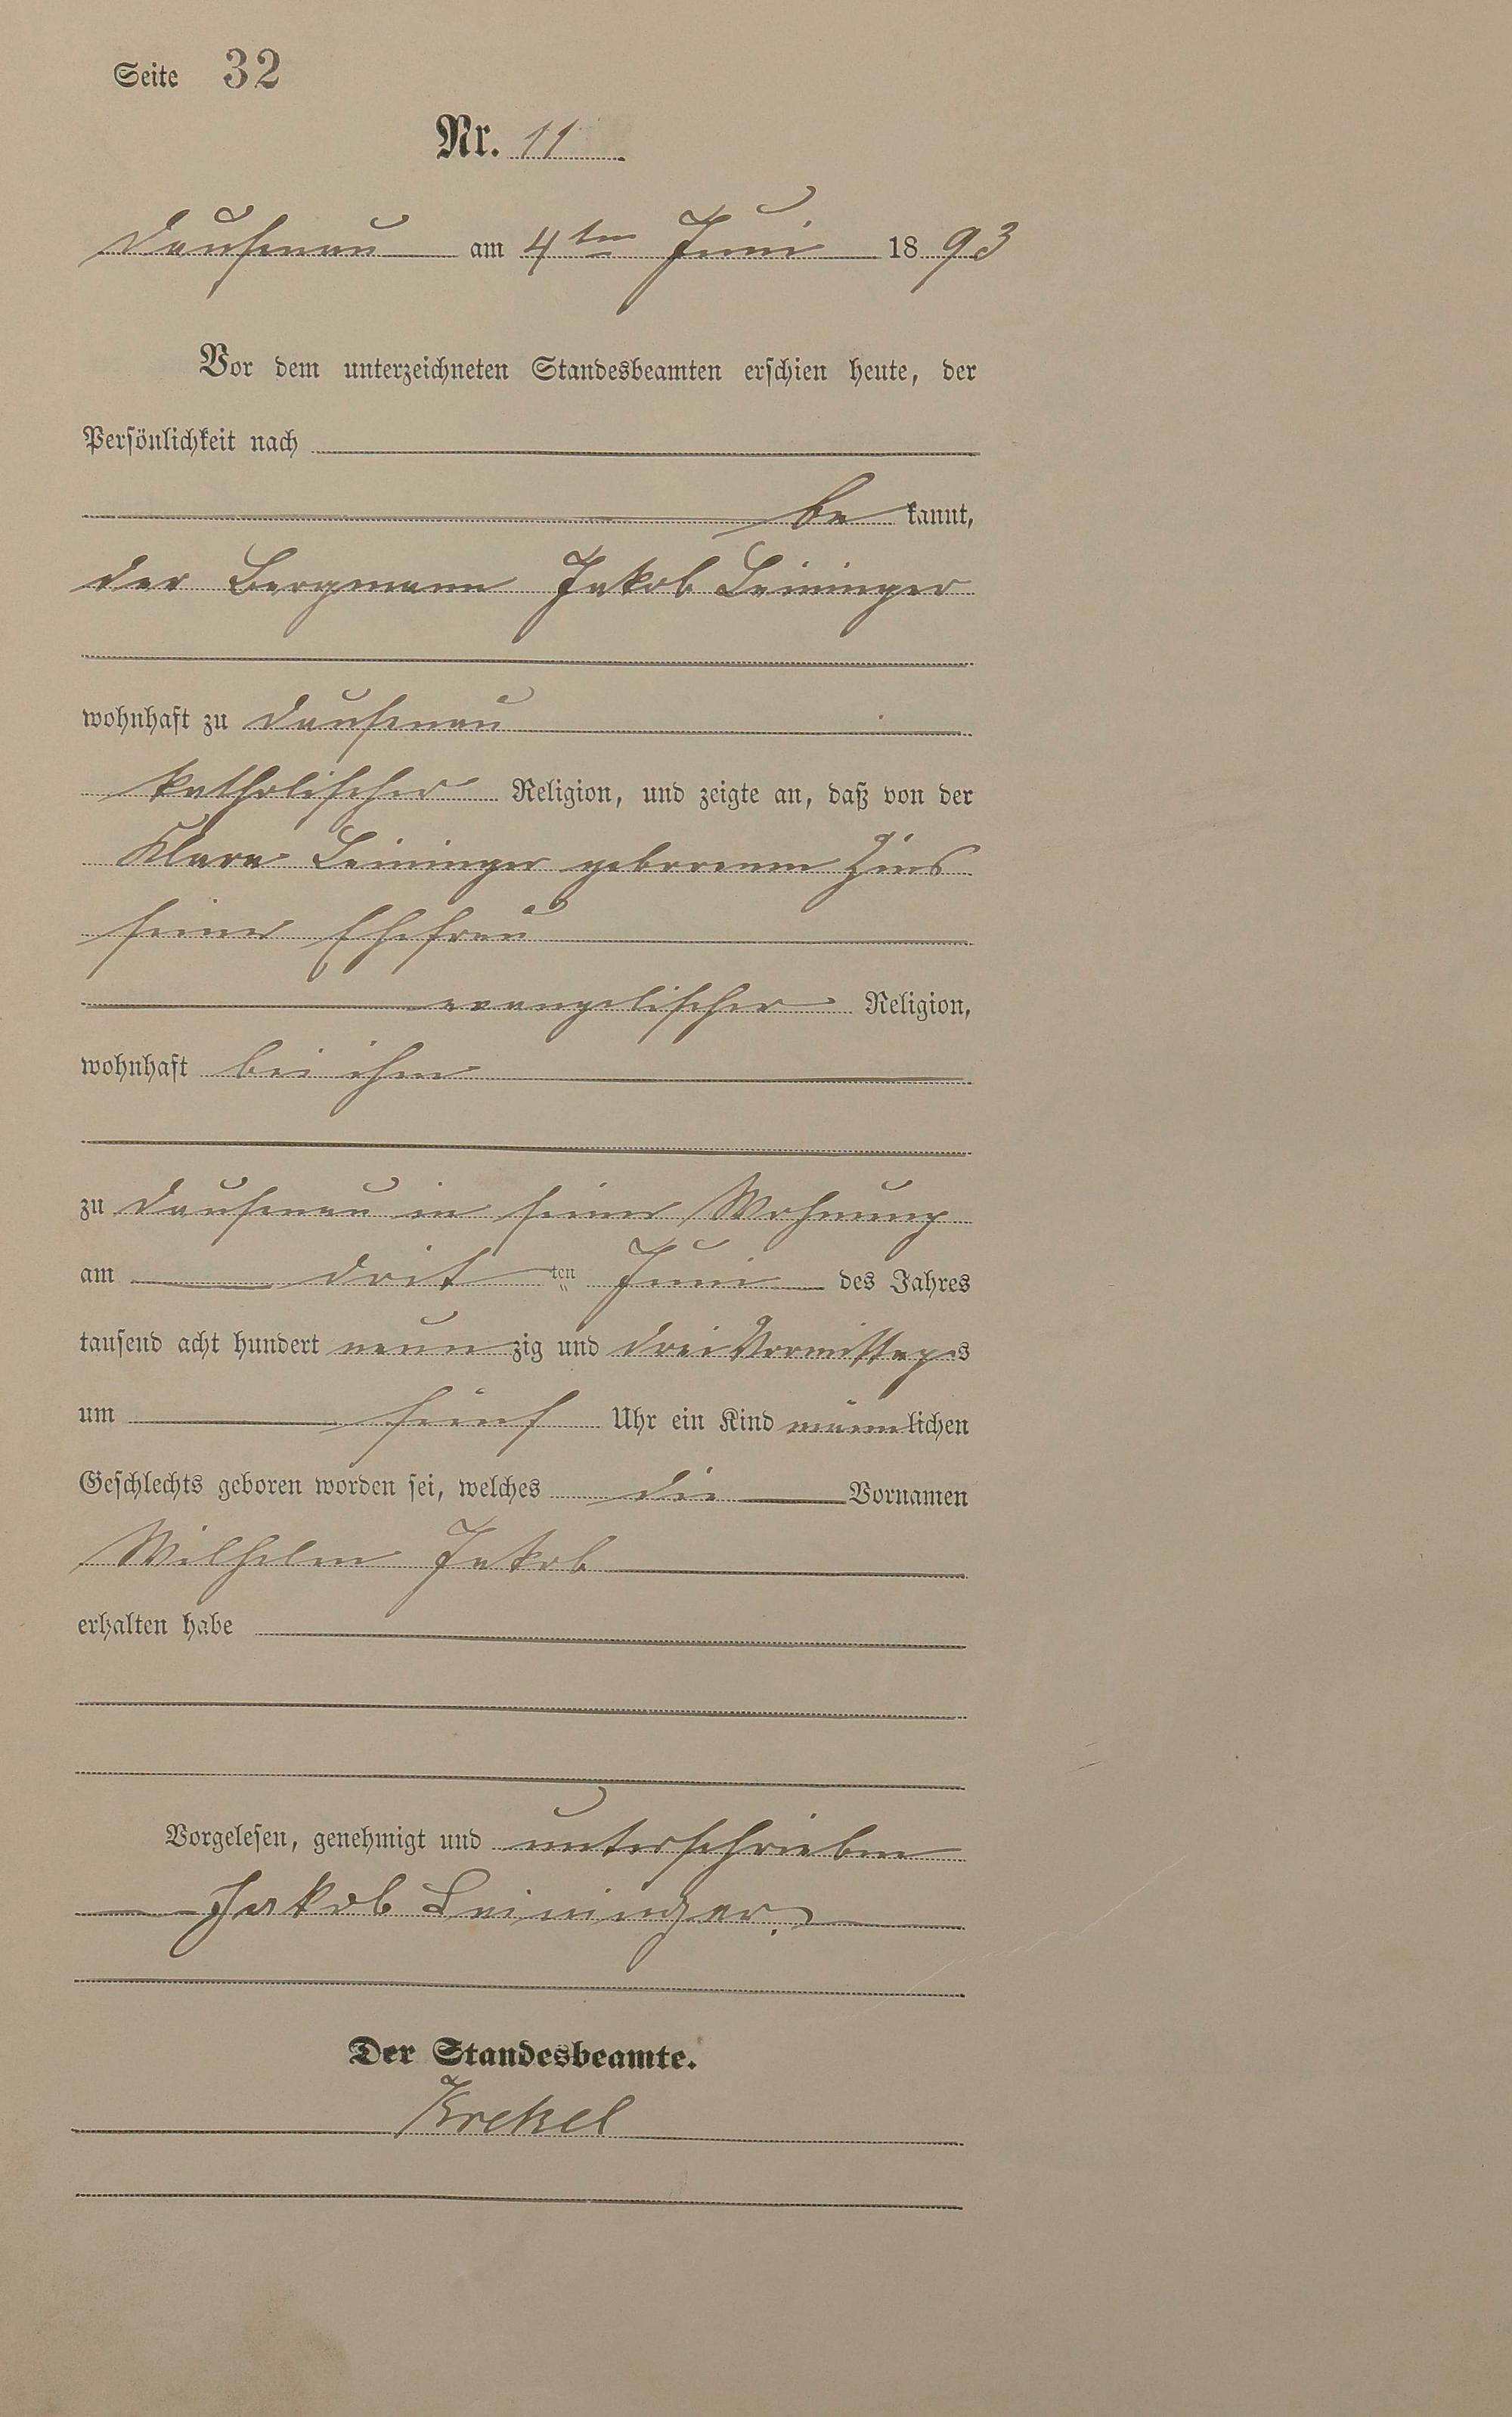 Seite 32
Nr. 11
Dausenau am 4ten Juni 1893
Vor dem unterzeichneten Standesbeamten erschien heute, der
Persönlichkeit nach
be kannt,
der Bergmann Jakob Leininger
wohnhaft zu Dausenau
katholischer Religion, und zeigte an, daß von der
Klara Leininger geborenen Zins
seiner Ehefrau
evangelischer Religion,
wohnhaft bei ihm
zu Dausenau in seiner Wohnung
am drit ten Juni des Jahres
tausend acht hundert neun zig und drei Vormittags
um fünf Uhr ein Kind männlichen
Geschlechts geboren worden sei, welches die Vornamen
Wilhelm Jakob
erhalten habe
Vorgelesen, genehmigt und unterschrieben
Jakob Leininger.
Der Standesbeamte.
Krekel